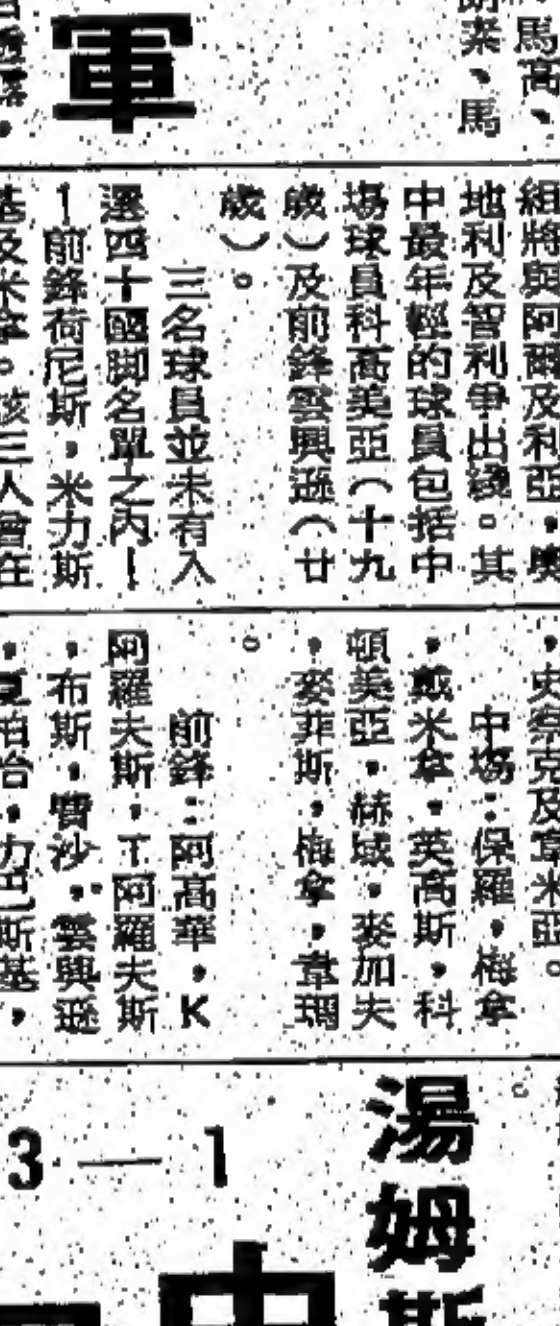 馬高、
、馬
軍
組將與阿爾及利亞，奧
地利及智利爭出綫。其
中最年輕的球員包括中
場球員科高美亞（十九
歲）及前鋒雲興遜（廿
歲）。
三名球員並未有入
選四十國脚名單之內—
—前鋒荷尼斯，米力斯
基及米拿。該三人曾在
中場：保羅，梅拿
，戴米拿，英高斯，科
頓美亞，赫域，麥加夫
，麥菲斯，梅拿，韋瑪
。
前鋒：阿高華，K
阿羅夫斯，T阿羅夫斯
，布斯，賓沙，雲興遜
力巴斯基，
湯姆斯
3—1
中